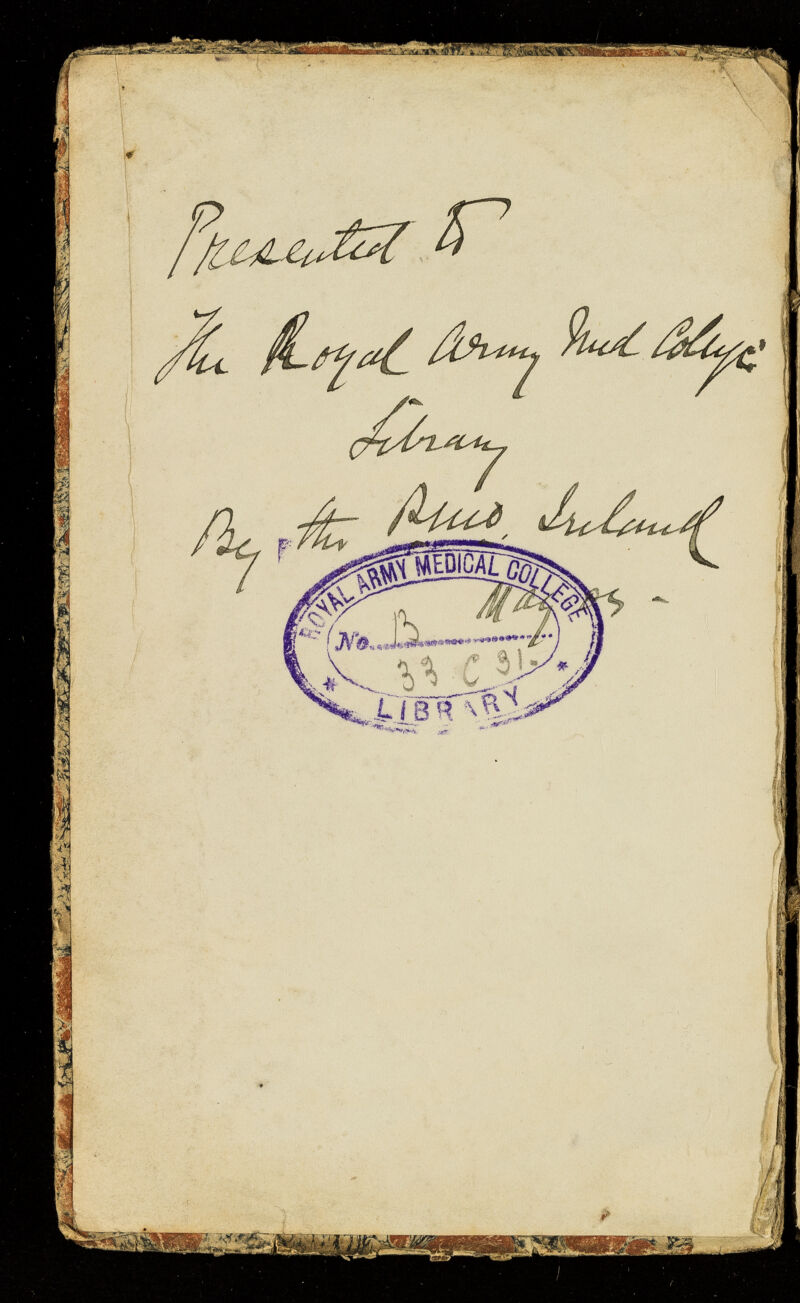 Presented to
The Royal Army Med College
Library
By the PMO. Ireland
May 05 -
ROYAL ARMY MEDICAL COLLEGE
No. B
33 C 31-
LIBRARY